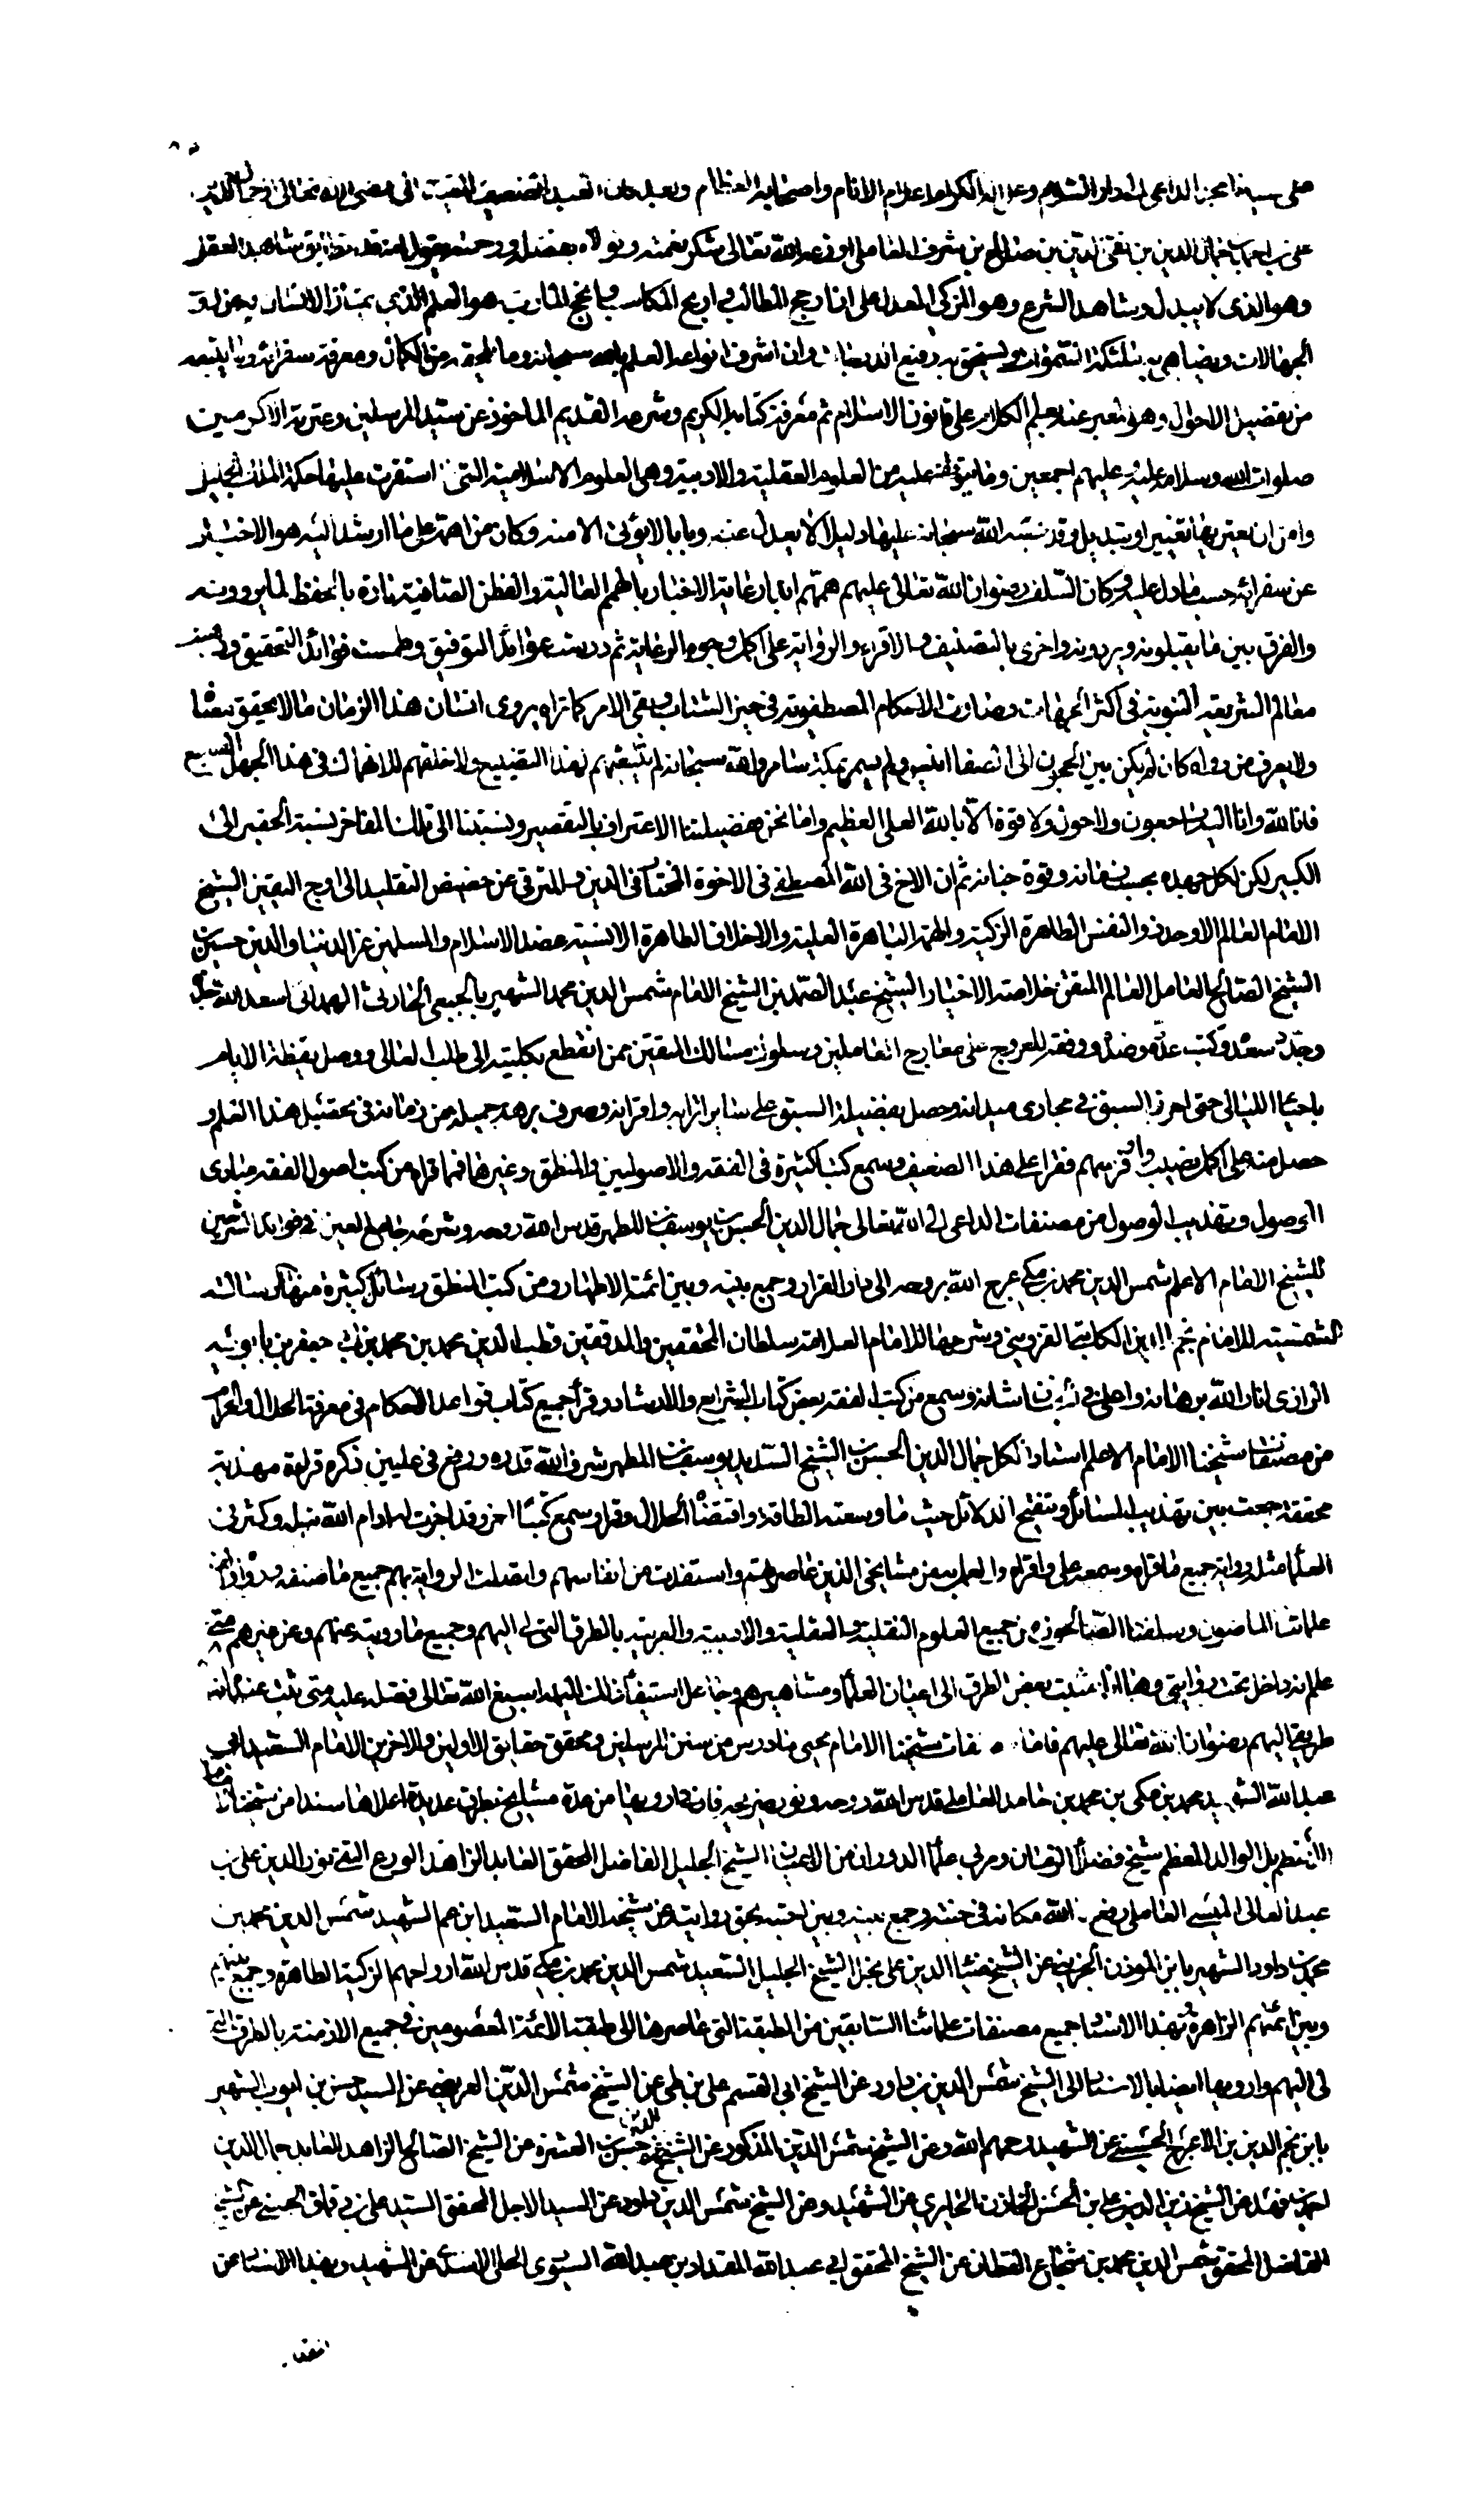 على سيدنا محمد الداعي الى دار السلام وعلى اله الكرام اعلام الانام واصحابه العظام وبعد فان العبد الضعيف المفتقر الى
على بن احمد بن جمال الدين بن تقي الدين بن صالح بن شرف العاملي اوزعه الله تعالى شكر نعمته وتولاه بفضله ورحمته يقول شاهد العقل
وهو الذي لا يبدل وشاهد الشرع وهو المزكى المعدل على ان ارجح المطالب واربح المكاسب وانجح المآرب هو العلم الذي يمتاز الانسان به عن
الجهالات ويضاهي به ملائكة السموات ويستحق به رفيع الدرجات وان اشرف انواعه العلم بالله سبحانه وما يلحقه من الكمال ومعرفة سفرائه وما يتبعه
من تفصيل الاحوال وهو المعبر عنه بعلم الكلام على قانون الاسلام ثم معرفة كتابه الكريم وشرعه القديم الماخوذ عن سيد المرسلين وعترته الاكرمين
صلوات الله وسلامه عليه وعليهم اجمعين وما يتوقف عليه من العلوم العقلية والادبية وهي العلوم الاسلامية التي استقرت عليها حكمة الملك الجليل
وامن ان يعتريها تغيير او تبديل وقد نصب الله سبحانه عليها دليلا لا يعدل عنه وبابا لا يؤتى الا منه وكان من اهمه على ما ارشد اليه هو الاخبار
عن سفرائه حسب ما دل عليه وكان السلف رضوان الله تعالى عليهم همتهم ابدا رعاية الاخبار بالهمم العالية والفطن الصافية تارة بالحفظ لما يروونه
والفرق بين ما يقبلونه ويردونه واخرى بالتصنيف والاقراء والرواية على اكمل وجوه الرعاية ثم درست عوائد التوفيق وطمست فوائد التحقيق
معالم الشريعة النبوية في اكثر الجهات وصارت الاحكام المصطفوية في حيز الشتات وبقي الامر كما تراه يروي انسان هذا الزمان ما لا يحقق معناه
ولا يعرف من رواه كان لم يكن بين الحجون الى الصفا انيس ولم يسمر بمكة سامر والله سبحانه لم يتعبهم لهذا التضييع ولا خلقهم للانهماك في هذا الجهل الشنيع
فانا لله وانا اليه راجعون ولا حول ولا قوة الا بالله العلي العظيم واما نحن ففضيلتنا الاعتراف بالتقصير ونسبتنا الى تلك المفاخر نسبة الحقير الى
الكبير لكن لكل جهده بحسب زمانه وقوة جنانه ثم ان الاخ في الله المصطفى في الاخوة المختار في الدين والمترقي عن حضيض التقليد الى اوج اليقين الشيخ
الامام العالم الاوحد ذو النفس الطاهرة الزكية والهمة الباهرة العلية والاخلاق الطاهرة الانسية عضد الاسلام والمسلمين عز الدنيا والدين حسين بن
الشيخ الصالح العامل العالم المتقن خلاصة الاخيار الشيخ عبد الصمد بن الشيخ الامام شمس الدين محمد الشهير بالجبعي الحارثي الهمداني اسعد الله جده
وجدد سعده وكبت عدوه وضده ووفقه للعروج على معارج العاملين وسلوك مسالك المتقين ممن انقطع بكليته الى طلب المعالي ووصل يقظة الايام
باحياء الليالي حتى احرز السبق في مجاري ميدانه وحصل بفضيلة السبق على ساير اترابه واقرانه وصرف برهة جميلة من زمانه في تحصيل هذا العلم و
حصل منه على اكمل نصيب واوفر سهم فقرا على هذا الضعيف وسمع كتبا كثيرة في الفقه والاصولين والمنطق وغيرها فمما قراه من كتب اصول الفقه مبادي
الوصول وتهذيب الوصول من مصنفات الداعي الى الله تعالى جمال الدين الحسن بن يوسف بن المطهر قدس الله روحه وشرحه جامع البين في فوائد الشرحين
للشيخ الامام الاعلم شمس الدين محمد بن مكي عرج الله بروحه الى دار القرار وجمع بينه وبين ائمته الاطهار ومن كتب المنطق رسائل كثيرة منها الرسالة
الشمسية للامام نجم الدين الكاتبي القزويني وشرحها للامام العلامة سلطان المحققين والمدققين قطب الدين محمد بن محمد بن ابي جعفر بن بابويه
الرازي انار الله برهانه واعلى في الجنان شانه وسمع من كتب الفقه بعض كتاب الشرايع والارشاد وقرأ جميع كتاب قواعد الاحكام في معرفة الحلال والحرام
من مصنفات شيخنا الامام الاعلم استاد الكل جمال الدين الحسن بن الشيخ السديد يوسف بن المطهر شرف الله قدره ورفع في عليين ذكره قراءة مهذبة
محققة جمعت بين تهذيب المسائل وتنقيح الدلائل حيث ما وسعته الطاقة واقتضاه الحال وقرا وسمع كتبا اخر وقد اجزت له ادام الله نبله وكثر في
العلماء مثله رواية جميع ما قراه وسمعه علي واقراه والعمل به عن مشايخي الذين عاصرتهم واستفدت من انفاسهم واتصلت الرواية بهم جميع ما صنفه ورواه
علمائنا الماضون وسلفنا الصالحون من جميع العلوم النقلية والعقلية والادبية والعربية بالطرق التي لي اليهم وجميع ما رويته عنهم وعن غيرهم متى
علم انه داخل تحت روايتي وها انا مثبت بعض الطرق الى اعيان العلماء ومشاهيرهم وجاعل استيفاء ذلك اليه اسبغ الله تعالى فضله عليه متى ثبت عنده انه
طريق اليهم رضوان الله تعالى عليهم فاما مصنفات شيخنا الامام محيي ما درس من سنن المرسلين ومحقق حقايق الاولين والاخرين الامام السعيد ابي
عبد الله الشهيد محمد بن مكي بن محمد بن حامد العاملي قدس الله روحه ونور ضريحه فاني ارويها من عدة مشايخ بطرق عديدة اعلاها سندا عن شيخنا الامام
الاعظم بل الوالد المعظم شيخ فضلاء الزمان ومربي علماء الدوران من الاعيان الشيخ الجليل الفاضل المحقق العابد الزاهد الورع التقي نور الدين علي بن
عبد العالي الميسي العاملي رفع الله مكانه في جنته وجمع بينه وبين احبته بحق روايته عن شيخه الامام السعيد ابن عم الشهيد شمس الدين محمد بن
محمد بن داود الشهير بابن المؤذن الجزيني عن الشيخ ضياء الدين علي نجل الشيخ الجليل السعيد شمس الدين محمد بن مكي قدس الله ارواحهم الزكية الطاهرة وجمع بينهم
وبين ائمتهم الزاهرة وبهذا الاسناد جميع مصنفات علمائنا السابقين من الطبقة التي عاصرها الى طبقة الائمة المعصومين في جميع الازمنة بالطرق التي
لي اليهم وارويها ايضا بالاسناد الى الشيخ شمس الدين بن داود عن الشيخ ابي القسم علي بن طي عن الشيخ شمس الدين العريضي عن السيد حسن بن ايوب الشهير
بابن نجم الدين بن الاعرج الحسيني عن الشهيد رحمهم الله وعن الشيخ شمس الدين المذكور عن الشيخ عز الدين حسن بن العشرة عن الشيخ الصالح الزاهد العابد جمال الدين
احمد بن فهد عن الشيخ زين الدين علي بن الحسن الخازن الحايري عن الشهيد وعن الشيخ شمس الدين بن داود عن السيد الاجل المحقق السيد علي بن دقماق الحسني عن الشيخ
الفاضل المحقق شمس الدين محمد بن شجاع القطان عن الشيخ المحقق ابي عبد الله المقداد بن عبد الله السيوري الحلي الاسدي عن الشهيد وبهذا الاسناد عن